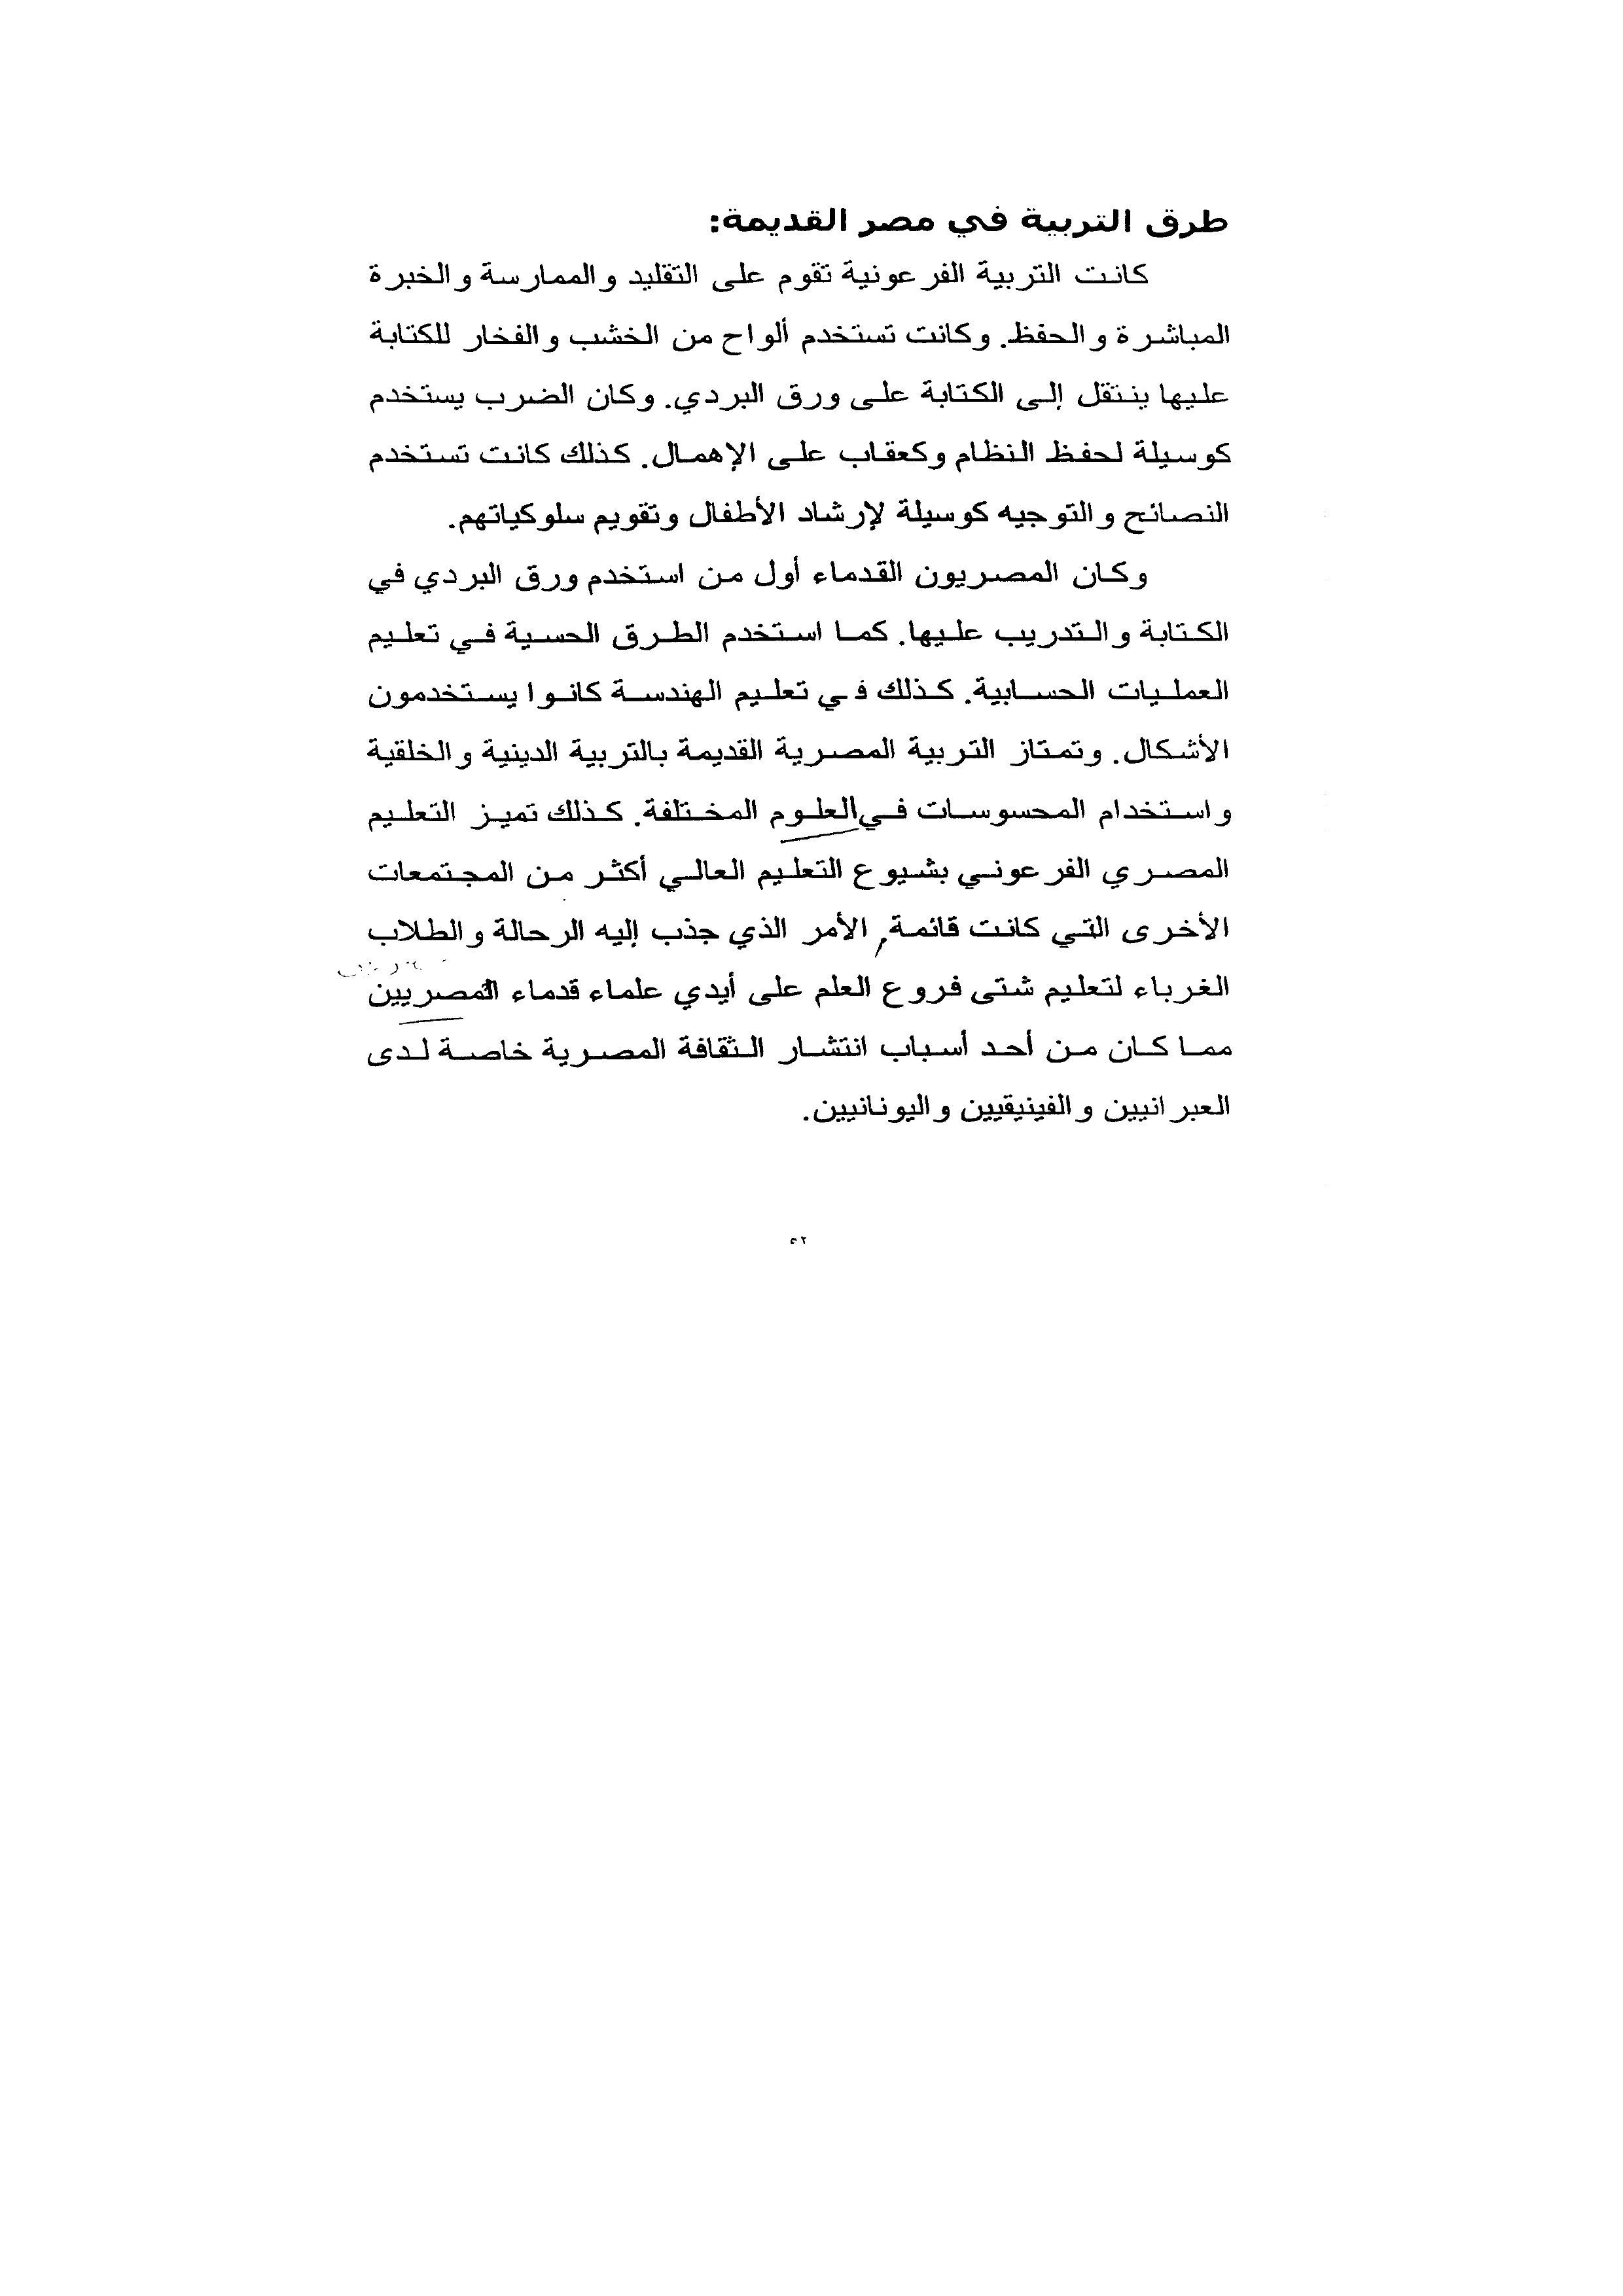 طرق التربية في مصر القديمة:
كانت التربية الفرعونية تقوم على التقليد والممارسة والخبرة
المباشرة والحفظ. وكانت تستخدم ألواح من الخشب والفخار للكتابة
عليها ينتقل إلى الكتابة على ورق البردي. وكان الضرب يستخدم
كوسيلة لحفظ النظام وكعقاب على الإهمال. كذلك كانت تستخدم
النصائح والتوجيه كوسيلة لإرشاد الأطفال وتقويم سلوكياتهم.
وكان المصريون القدماء أول من استخدم ورق البردي في
الكتابة والتدريب عليها. كما استخدم الطرق الحسية في تعليم
العمليات الحسابية. كذلك في تعليم الهندسة كانوا يستخدمون
الأشكال. وتمتاز التربية المصرية القديمة بالتربية الدينية والخلقية
واستخدام المحسوسات في العلوم المختلفة. كذلك تميز التعليم
المصري الفرعوني بشيوع التعليم العالي أكثر من المجتمعات
الأخرى التي كانت قائمة، الأمر الذي جذب إليه الرحالة والطلاب
الغرباء لتعليم شتى فروع العلم على أيدي علماء قدماء المصريين
مما كان من أحد أسباب انتشار الثقافة المصرية خاصة لدى
العبرانيين والفينيقيين واليونانيين.
٥٢